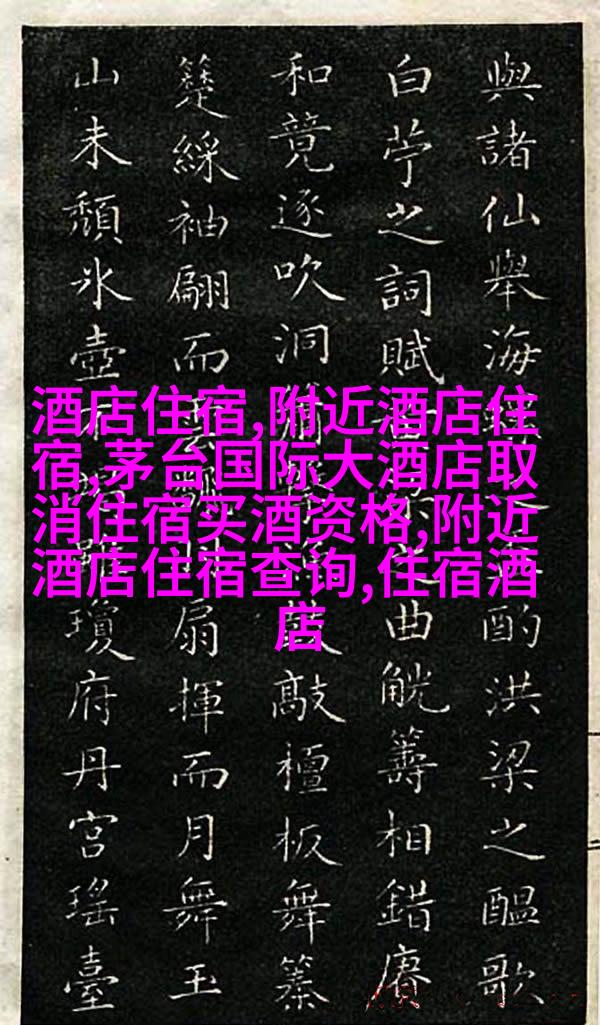 與諸仙舉海酌洪梁之醖歌
白苧之詞賦曲觥籌相錯賡
和竟逐吹洞敲檀板舞纂
綵袖翩而扇揮而月舞玉
山未頹氷壺瓊府丹宮瑤臺
酒店住宿,附近酒店住
宿,茅台国际大酒店取
消住宿买酒资格,附近
酒店住宿查询,住宿酒
店